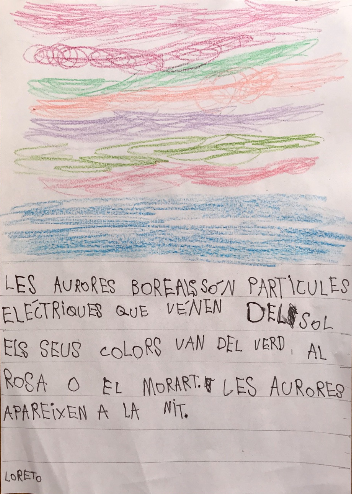 LES AURORES BOREALS SÓN PARTÍCULES
ELÉCTRIQUES QUE VÉNEN DEL SOL
ELS SEUS COLORS VAN DEL VERD AL
ROSA O EL MORART. LES AURORES
APAREIXEN A LA NIT.
LORETO